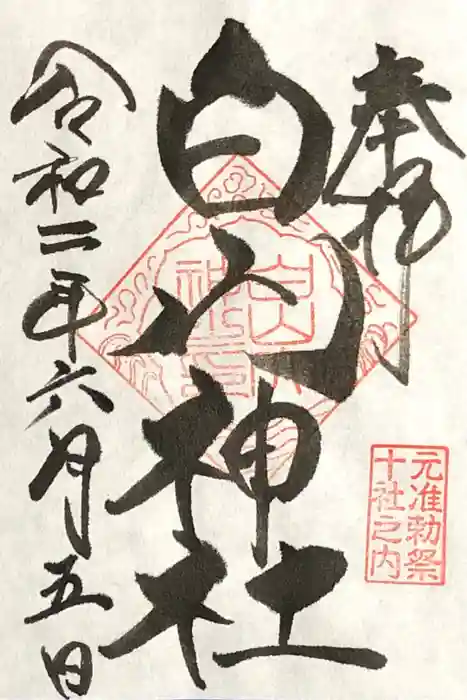 奉拝
元准勅祭
十社之内
白山神社
令和二年六月五日